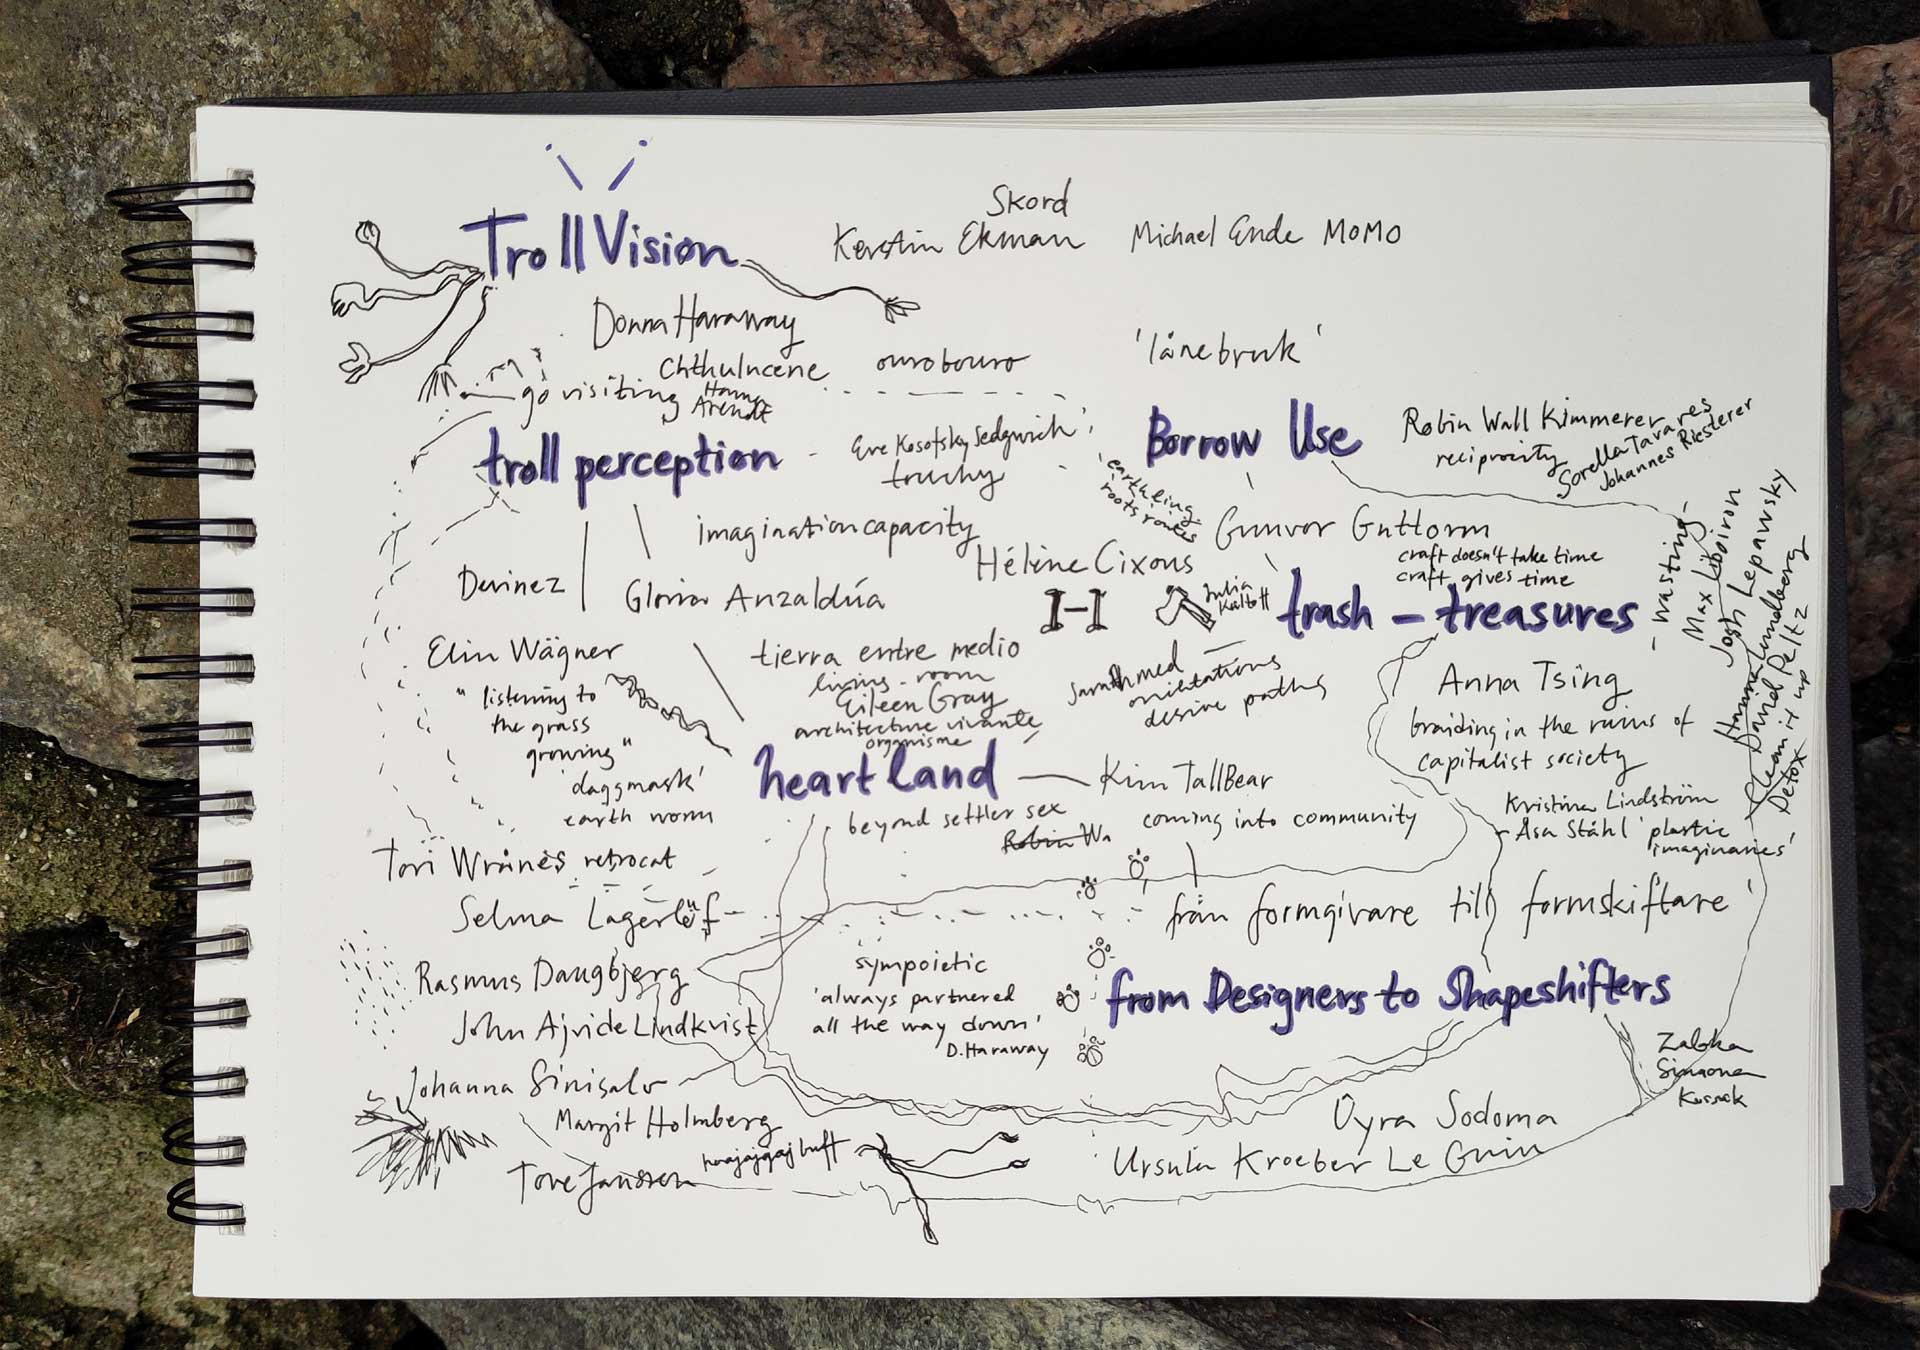 Troll Vision
Skord
Kerstin Ekman
Michael Ende MOMO
Donna Haraway
Chthulucene
ourobouro
go visiting
Hanna
Arendt
'lånebruk'
troll perception
Eve Kosofsky Sedgwick
Borrow Use
Robin Wall Kimmerer
reciprocity
Sorella Tavares
Johannes Riesterer
earthling
roots routes
imagination capacity
Gunvor Guttorm
craft doesn't take time
craft gives time
Hélène Cixous
Devinez
Gloria Anzaldúa
I-I
Julia
trash - treasures
- wasting -
Max Liboiron
Josh Lepawsky
Hanna Lundberg
David Peltz
clean it up
Detox
Elin Wägner
"listening to
the grass
growing"
'daggmask'
earth worm
tierra entre medio
living-room
Eileen Gray
architecture vivante
organisme
orientations
desire paths
Anna Tsing
braiding in the ruins of
capitalist society
heartland
Kim TallBear
beyond settler sex
Robin Wa
coming into community
Kristina Lindström
Åsa Ståhl 'plastic
imaginaries'
Tori Wrånes retrocat
Selma Lagerlöf
från formgivare till formskiftare
Rasmus Daugbjerg
sympoietic
'always partnered
all the way down'
D. Haraway
from Designers to Shapeshifters
John Ajvide Lindkvist
Johanna Sinisalo
Margit Holmberg
Tove Jansson
Oyra Sodoma
Ursula Kroeber Le Guin
Simona